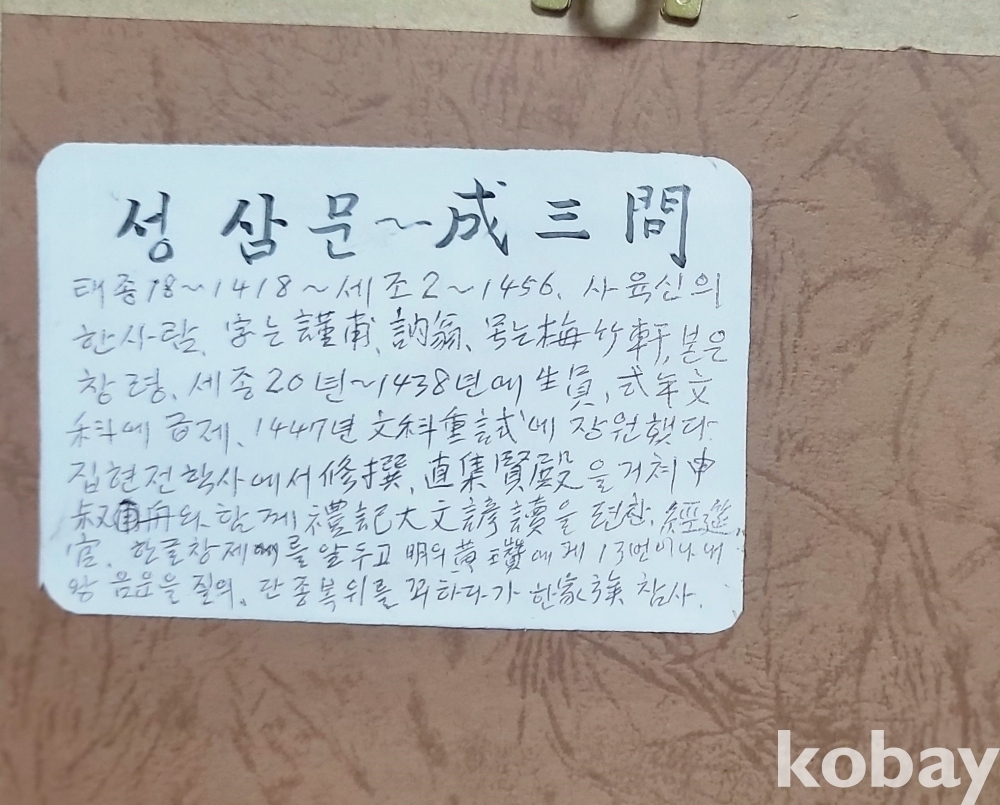 성 삼 문~成 三 問
태종18~1418~세조2~1456. 사육신의
한사람. 字는 謹甫、訥翁、号는梅竹軒, 본은
창령. 세종20년~1438년에 生員, 式年文
科에 급제. 1447년 文科重試에 장원했다.
집현전학사에서 修撰, 直集賢殿을 거쳐 申
叔舟와 함께 禮記大文諺讀을 편찬. 經筵
官. 한글창제를 앞두고 明의 黃瓚에게 13번이나 내
왕 음운을 질의. 단종복위를 꾀하다가 참사.
kobay